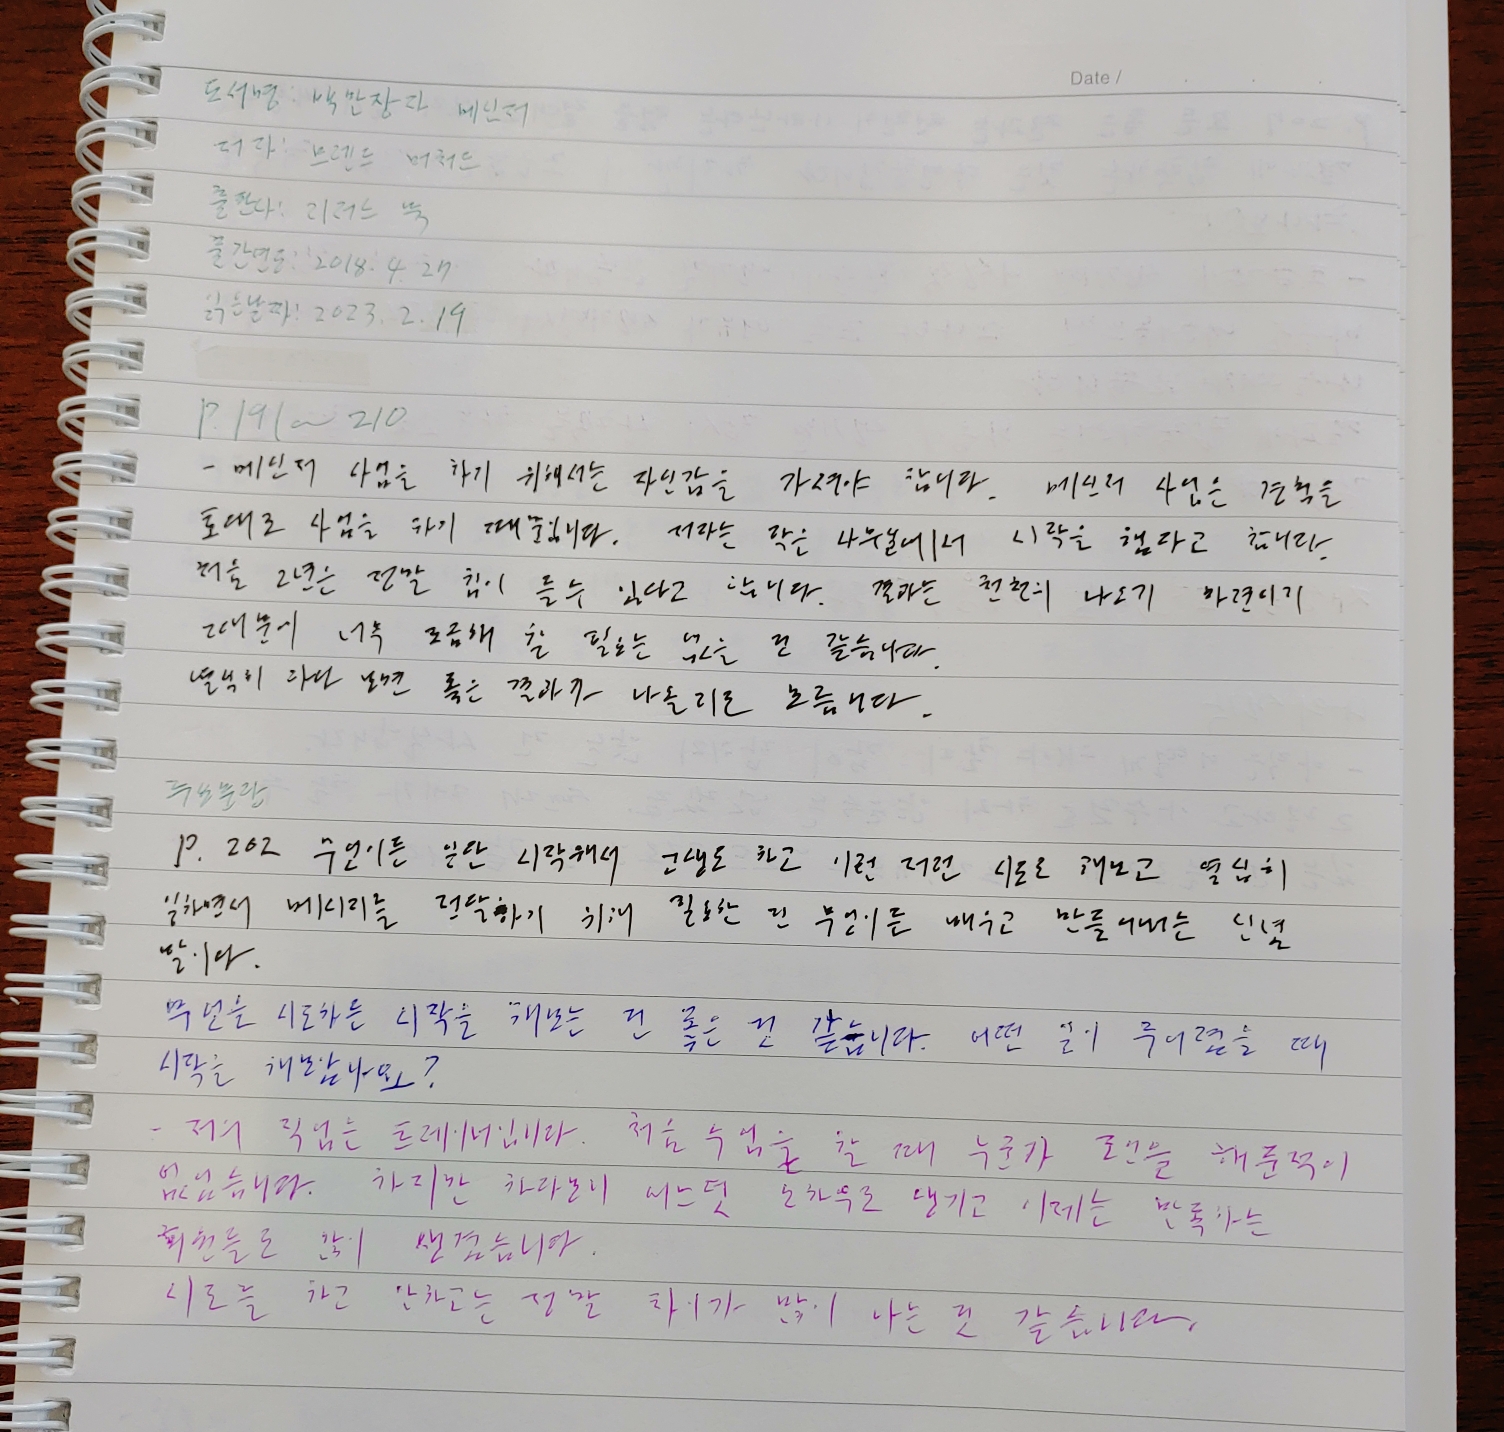 Date /
도서명 : 백만장자 메신저
저자 : 브렌든 버처드
출판사 : 리더스 북
출간연도 : 2018. 4. 27
읽은날짜 : 2023. 2. 19
p. 191~210
- 메신저 사업을 하기 위해서는 자신감을 가져야 합니다. 메신저 사업은 경험을
토대로 사업을 하기 때문입니다. 저자는 작은 사무실에서 시작을 했다고 합니다.
처음 2년은 정말 힘이 들수 있다고 합니다. 결과는 천천히 나오기 마련이기
때문에 너무 조급해 할 필요는 없을 것 같습니다.
열심히 하다 보면 좋은 결과가 나올지도 모릅니다.
주요문장
p. 202 무엇이든 일단 시작해서 고생도 하고 이런 저런 시도도 해보고 열심히
일하면서 메시지를 전달하기 위해 필요한 건 무엇이든 배우고 만들어내는 신념
말이다.
무엇을 시도하든 시작을 해보는 건 좋은 것 같습니다. 어떤 일이 두려웠을 때
시작을 해보았나요?
- 저의 직업은 트레이너입니다. 처음 수업을 할 때 누군가 조언을 해준적이
없었습니다. 하지만 하다보니 어느덧 노하우도 생기고 이제는 만족하는
회원들도 많이 생겼습니다.
시도를 하고 안하고는 정말 차이가 많이 나는 것 같습니다.